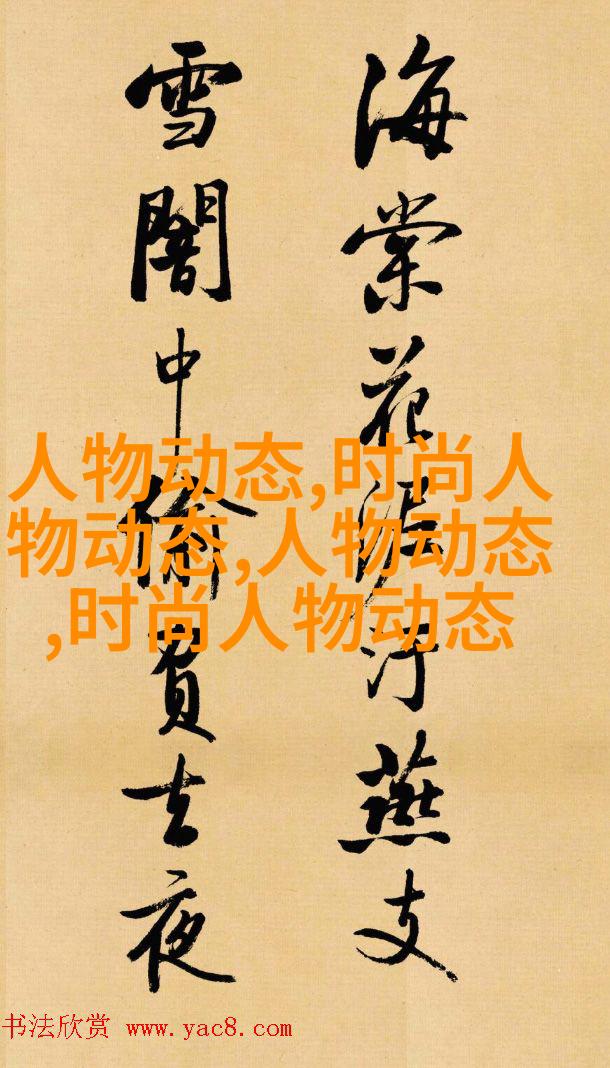 海棠花泥汙燕支
雪闇中偷負去夜
人物动态,时尚人
物动态,人物动态
,时尚人物动态
书法欣赏 www.yac8.com